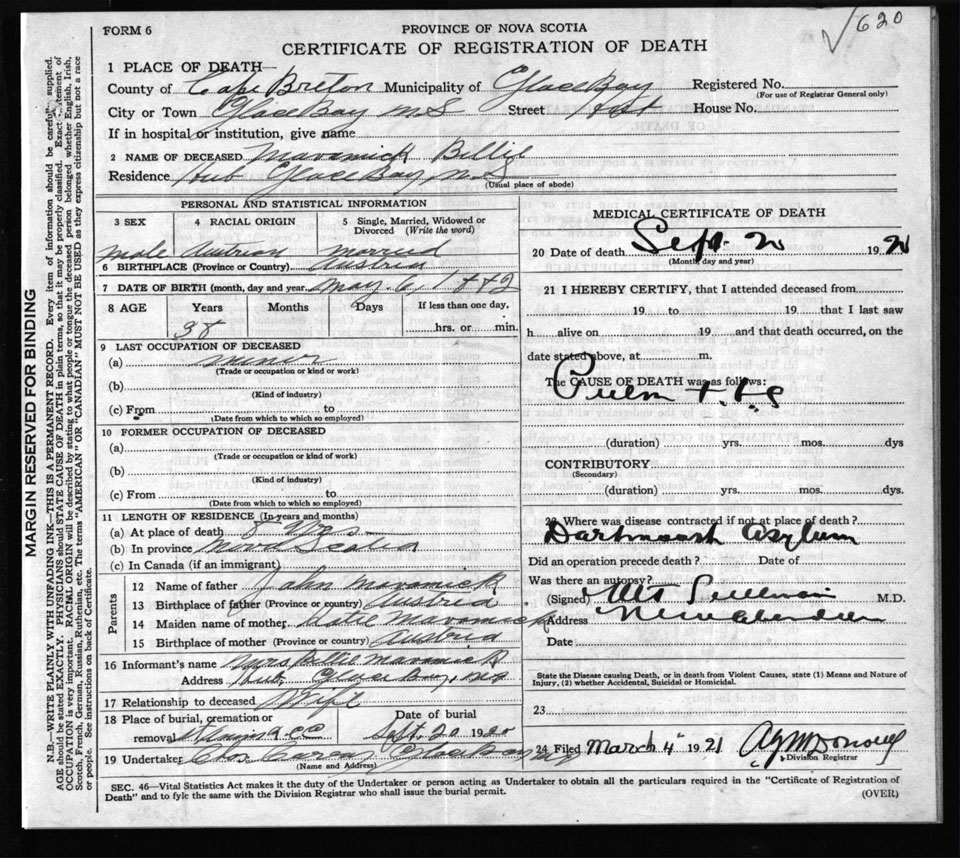 620
FORM 6
PROVINCE OF NOVA SCOTIA
CERTIFICATE OF REGISTRATION OF DEATH
MARGIN RESERVED FOR BINDING
N.B.—WRITE PLAINLY WITH UNFADING INK—THIS IS A PERMANENT RECORD. Every item of information should be carefully supplied.
AGE should be stated EXACTLY. PHYSICIANS should STATE CAUSE OF DEATH in plain terms, so that it may be properly classified. Exact statement of
OCCUPATION is very important. RACIAL ORIGIN will be described by stating to what people or tongue the deceased person belonged whether English, Irish,
Scotch, French, German, Russian, Ruthenian, etc. The terms "AMERICAN" or "CANADIAN" MUST NOT BE USED as they express citizenship but not a race
or people. See instructions on back of Certificate.
1 PLACE OF DEATH—
County of Cape Breton Municipality of Glace Bay Registered No.
(For use of Registrar General only)
City or Town Glace Bay N S Street House No.
If in hospital or institution, give name
2 NAME OF DECEASED Mavamick Billie
Residence Hub Glace Bay, N.S
(Usual place of abode)
PERSONAL AND STATISTICAL INFORMATION
3 SEX 4 RACIAL ORIGIN 5 Single, Married, Widowed or Divorced (Write the word)
male Austrian married
6 BIRTHPLACE (Province or Country) Austria
7 DATE OF BIRTH (month, day and year) May 6, 1882
8 AGE Years Months Days If less than one day,
38 hrs. or min.
9 LAST OCCUPATION OF DECEASED
(a) miner
(Trade or occupation or kind or work)
(b)
(Kind of industry)
(c) From to
(Date from which to which so employed)
10 FORMER OCCUPATION OF DECEASED
(a)
(Trade or occupation or kind of work)
(b)
(Kind of industry)
(c) From to
(Date from which to which so employed)
11 LENGTH OF RESIDENCE (In years and months)
(a) At place of death 8 yrs
(b) In province Nova Scotia
(c) In Canada (if an immigrant)
Parents
12 Name of father John Mavamick
13 Birthplace of father (Province or country) Austria
14 Maiden name of mother Mavamick
15 Birthplace of mother (Province or country) Austria
16 Informant's name Mrs Billie Mavamick
Address Hub Glace Bay, N.S
17 Relationship to deceased Wife
18 Place of burial, cremation or Date of burial
removal Sept. 20 1920
19 Undertaker Glace Bay N.S
(Name and Address)
MEDICAL CERTIFICATE OF DEATH
20 Date of death Sept. 20 1920
(Month, day and year)
21 I HEREBY CERTIFY, that I attended deceased from
19 to 19 that I last saw
h alive on 19 and that death occurred, on the
date stated above, at m.
The CAUSE OF DEATH was as follows:
Pulm
(duration) yrs. mos. dys
CONTRIBUTORY
(Secondary)
(duration) yrs. mos. dys.
22 Where was disease contracted if not at place of death?
Dartmouth Asylum
Did an operation precede death? Date of
Was there an autopsy?
(Signed) M.D.
Address New Aberdeen
Date
State the Disease causing Death, or in death from Violent Causes, state (1) Means and Nature of
Injury, (2) whether Accidental, Suicidal or Homicidal.
23
24 Filed March 4 1921 A J McDonald
Division Registrar
SEC. 46—Vital Statistics Act makes it the duty of the Undertaker or person acting as Undertaker to obtain all the particulars required in the "Certificate of Registration of
Death" and to fyle the same with the Division Registrar who shall issue the burial permit.
(OVER)